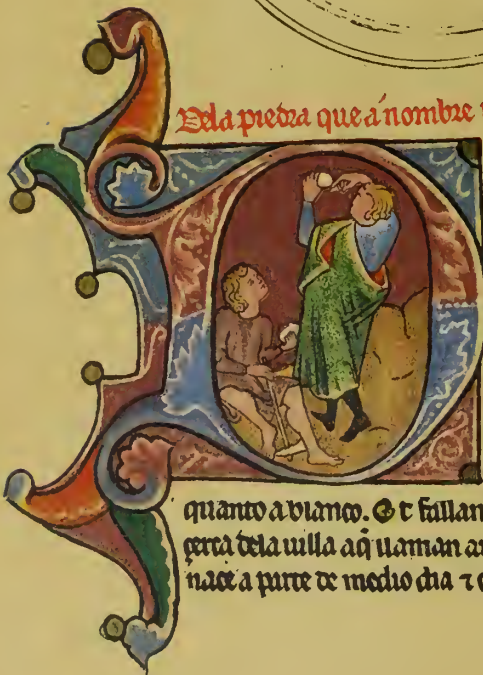 Dela piedra que a nombre
quanto a blanco. Et fallan
çerca dela uilla aq̃ llaman
naçe a parte de medio dia ⁊